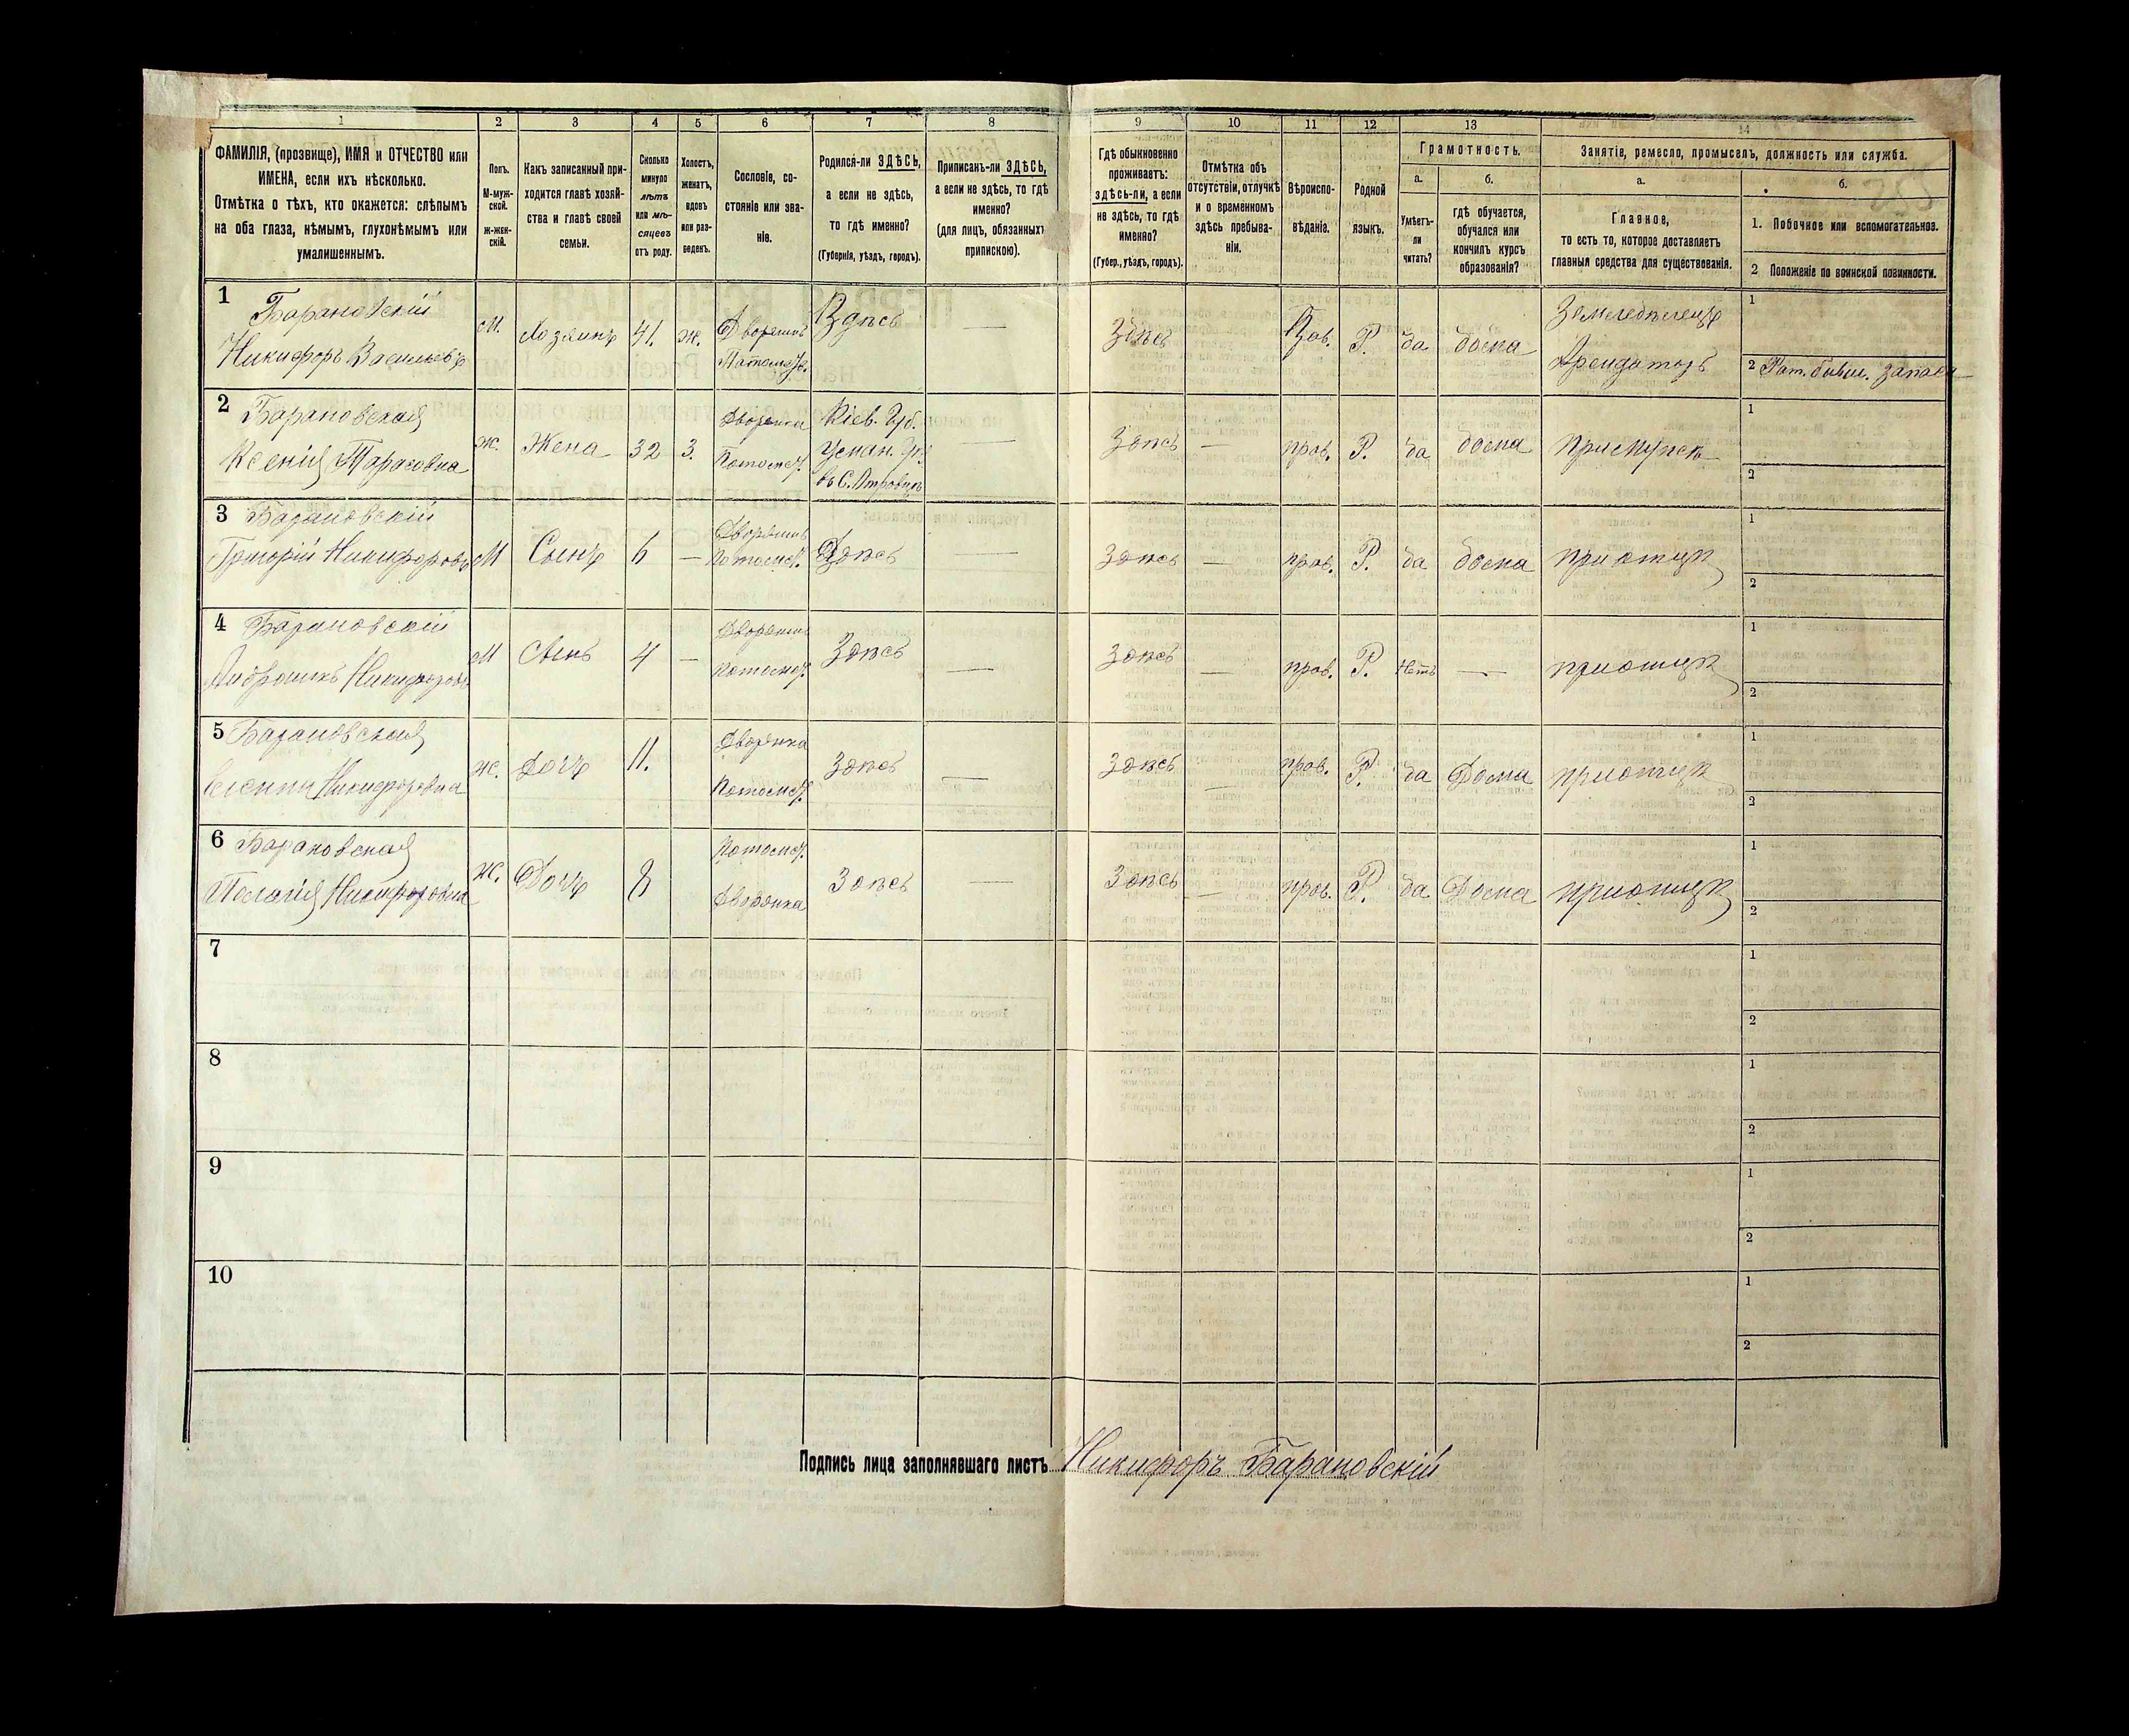 1 2 3 4 5 6 7 8 9 10 11 12 13 14
ФАМИЛІЯ, (прозвище), ИМЯ и ОТЧЕСТВО или
ИМЕНА, если ихъ нѣсколько.
Отмѣтка о тѣхъ, кто окажется: слѣпымъ
на оба глаза, нѣмымъ, глухонѣмымъ или
умалишеннымъ.
Полъ.
М-муж-
ской.
Ж-жен-
скій.
Какъ записанный при-
ходится главѣ хозяй-
ства и главѣ своей
семьи.
Сколько
минуло
лѣтъ
или мѣ-
сяцевъ
отъ роду.
Холостъ,
женатъ,
вдовъ
или раз-
веденъ.
Сословіе, со-
стояніе или зва-
ніе.
Родился-ли ЗДѢСЬ,
а если не здѣсь,
то гдѣ именно?
(Губернія, уѣздъ, городъ).
Приписанъ-ли ЗДѢСЬ,
а если не здѣсь, то гдѣ
именно?
(для лицъ, обязанныхъ
припискою).
Гдѣ обыкновенно
проживаетъ:
здѣсь-ли, а если
не здѣсь, то гдѣ
именно?
(Губер., уѣздъ, городъ).
Отмѣтка объ
отсутствіи, отлучкѣ
и о временномъ
здѣсь пребыва-
ніи.
Вѣроиспо-
вѣданіе.
Родной
языкъ.
Грамотность.
а.
Умѣетъ-
ли
читать?
б.
гдѣ обучается,
обучался или
кончилъ курсъ
образованія?
Занятіе, ремесло, промыселъ, должность или служба.
а.
Главное,
то есть то, которое доставляетъ
главныя средства для существованія.
б.
1. Побочное или вспомогательное.
2 Положеніе по воинской повинности.
1 Барановскій
Никифоръ Васильевъ
М. Хозяинъ 41. ж. Дворянинъ
Потомст.
Здѣсь — Здѣсь Прав. Р. да дома
Земледѣлецъ
Арендаторъ
1
2 Рат. бывш. запаса
2 Барановская
Ксенія Тарасовна
ж. Жена 32 З. Дворянка
Потомст.
Кіев. Губ.
Уман. Уѣ.
въ С.
— Здѣсь — прав. Р. да дома при мужѣ
1
2
3 Барановскій
Григорій Никифоровъ
М Сынъ 6 — Дворянинъ
Потомст.
Здѣсь — Здѣсь — прав. Р. да дома при отцѣ
1
2
4 Барановскій
Никифоровъ
М Сынъ 4 — Дворянинъ
Потомст.
Здѣсь — Здѣсь — прав. Р. Нѣтъ — при отцѣ
1
2
5 Барановская
Никифоровна
ж. Дочь 11. Дворянка
Потомст.
Здѣсь — Здѣсь — прав. Р. да Дома при отцѣ
1
2
6 Барановская
Пелагія Никифоровна
ж. Дочь 8 Потомст.
Дворянка
Здѣсь — Здѣсь — прав. Р. да Дома при отцѣ
1
2
7
1
2
8
1
2
9
1
2
10
1
2
Подпись лица заполнявшаго листъ Никифоръ Барановскій